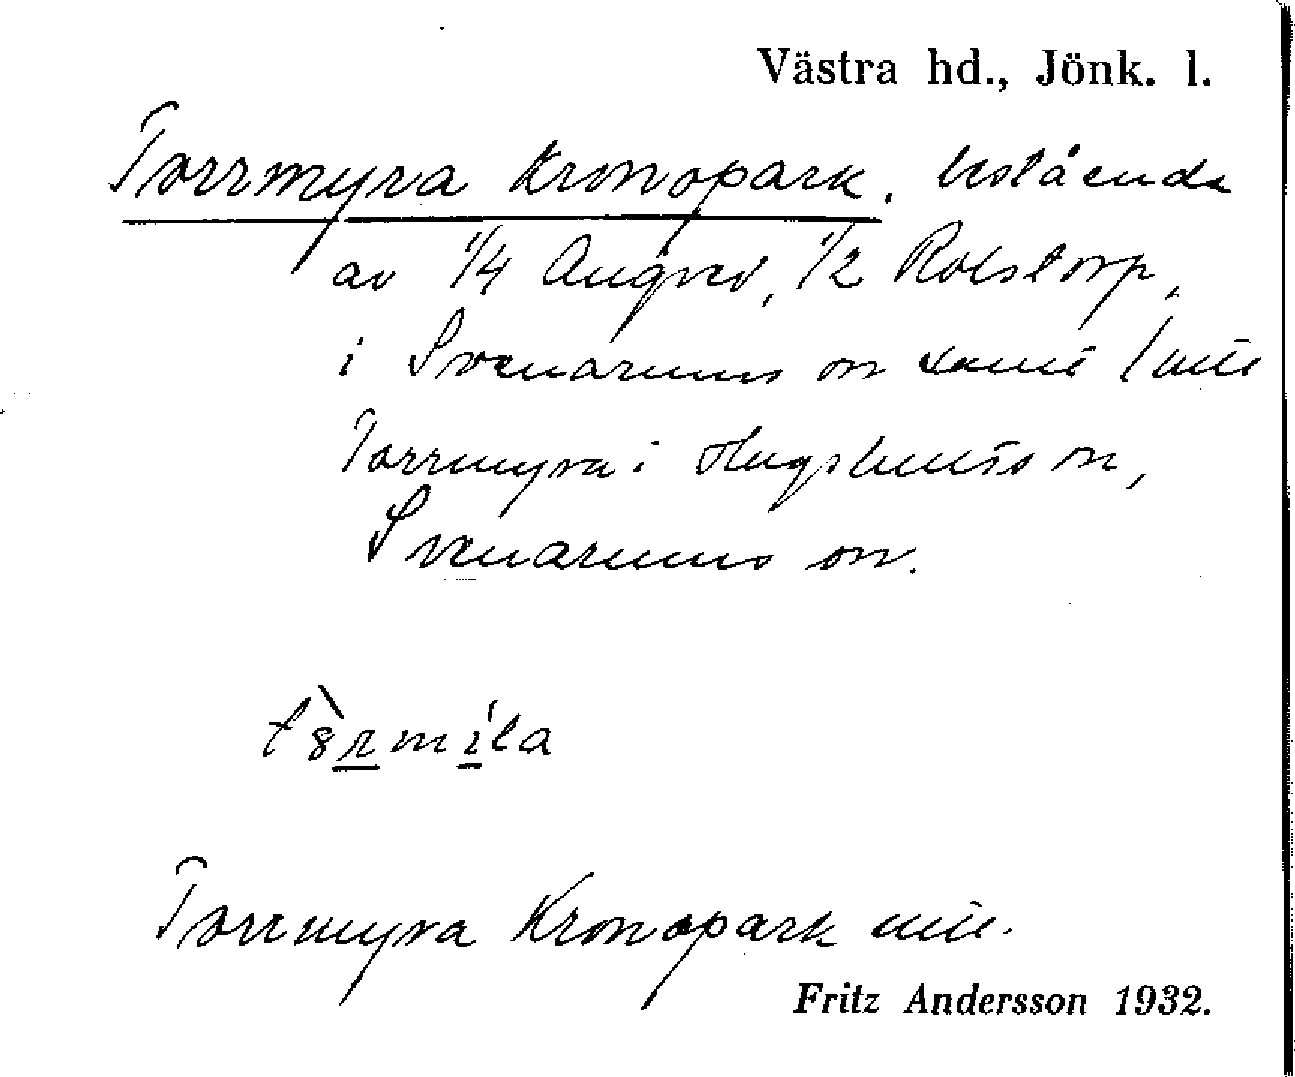 Västra hd., Jönk. l.
Torrmyra Kronopark, bestående
av 1/4 Angred, 1/2 Rolstorp,
i Svenarums sn samt 1 mtl
Torrmyra i Hagshults sn,
Svenarums sn.
Torrmyra Kronopark mtl.
Fritz Andersson 1932.